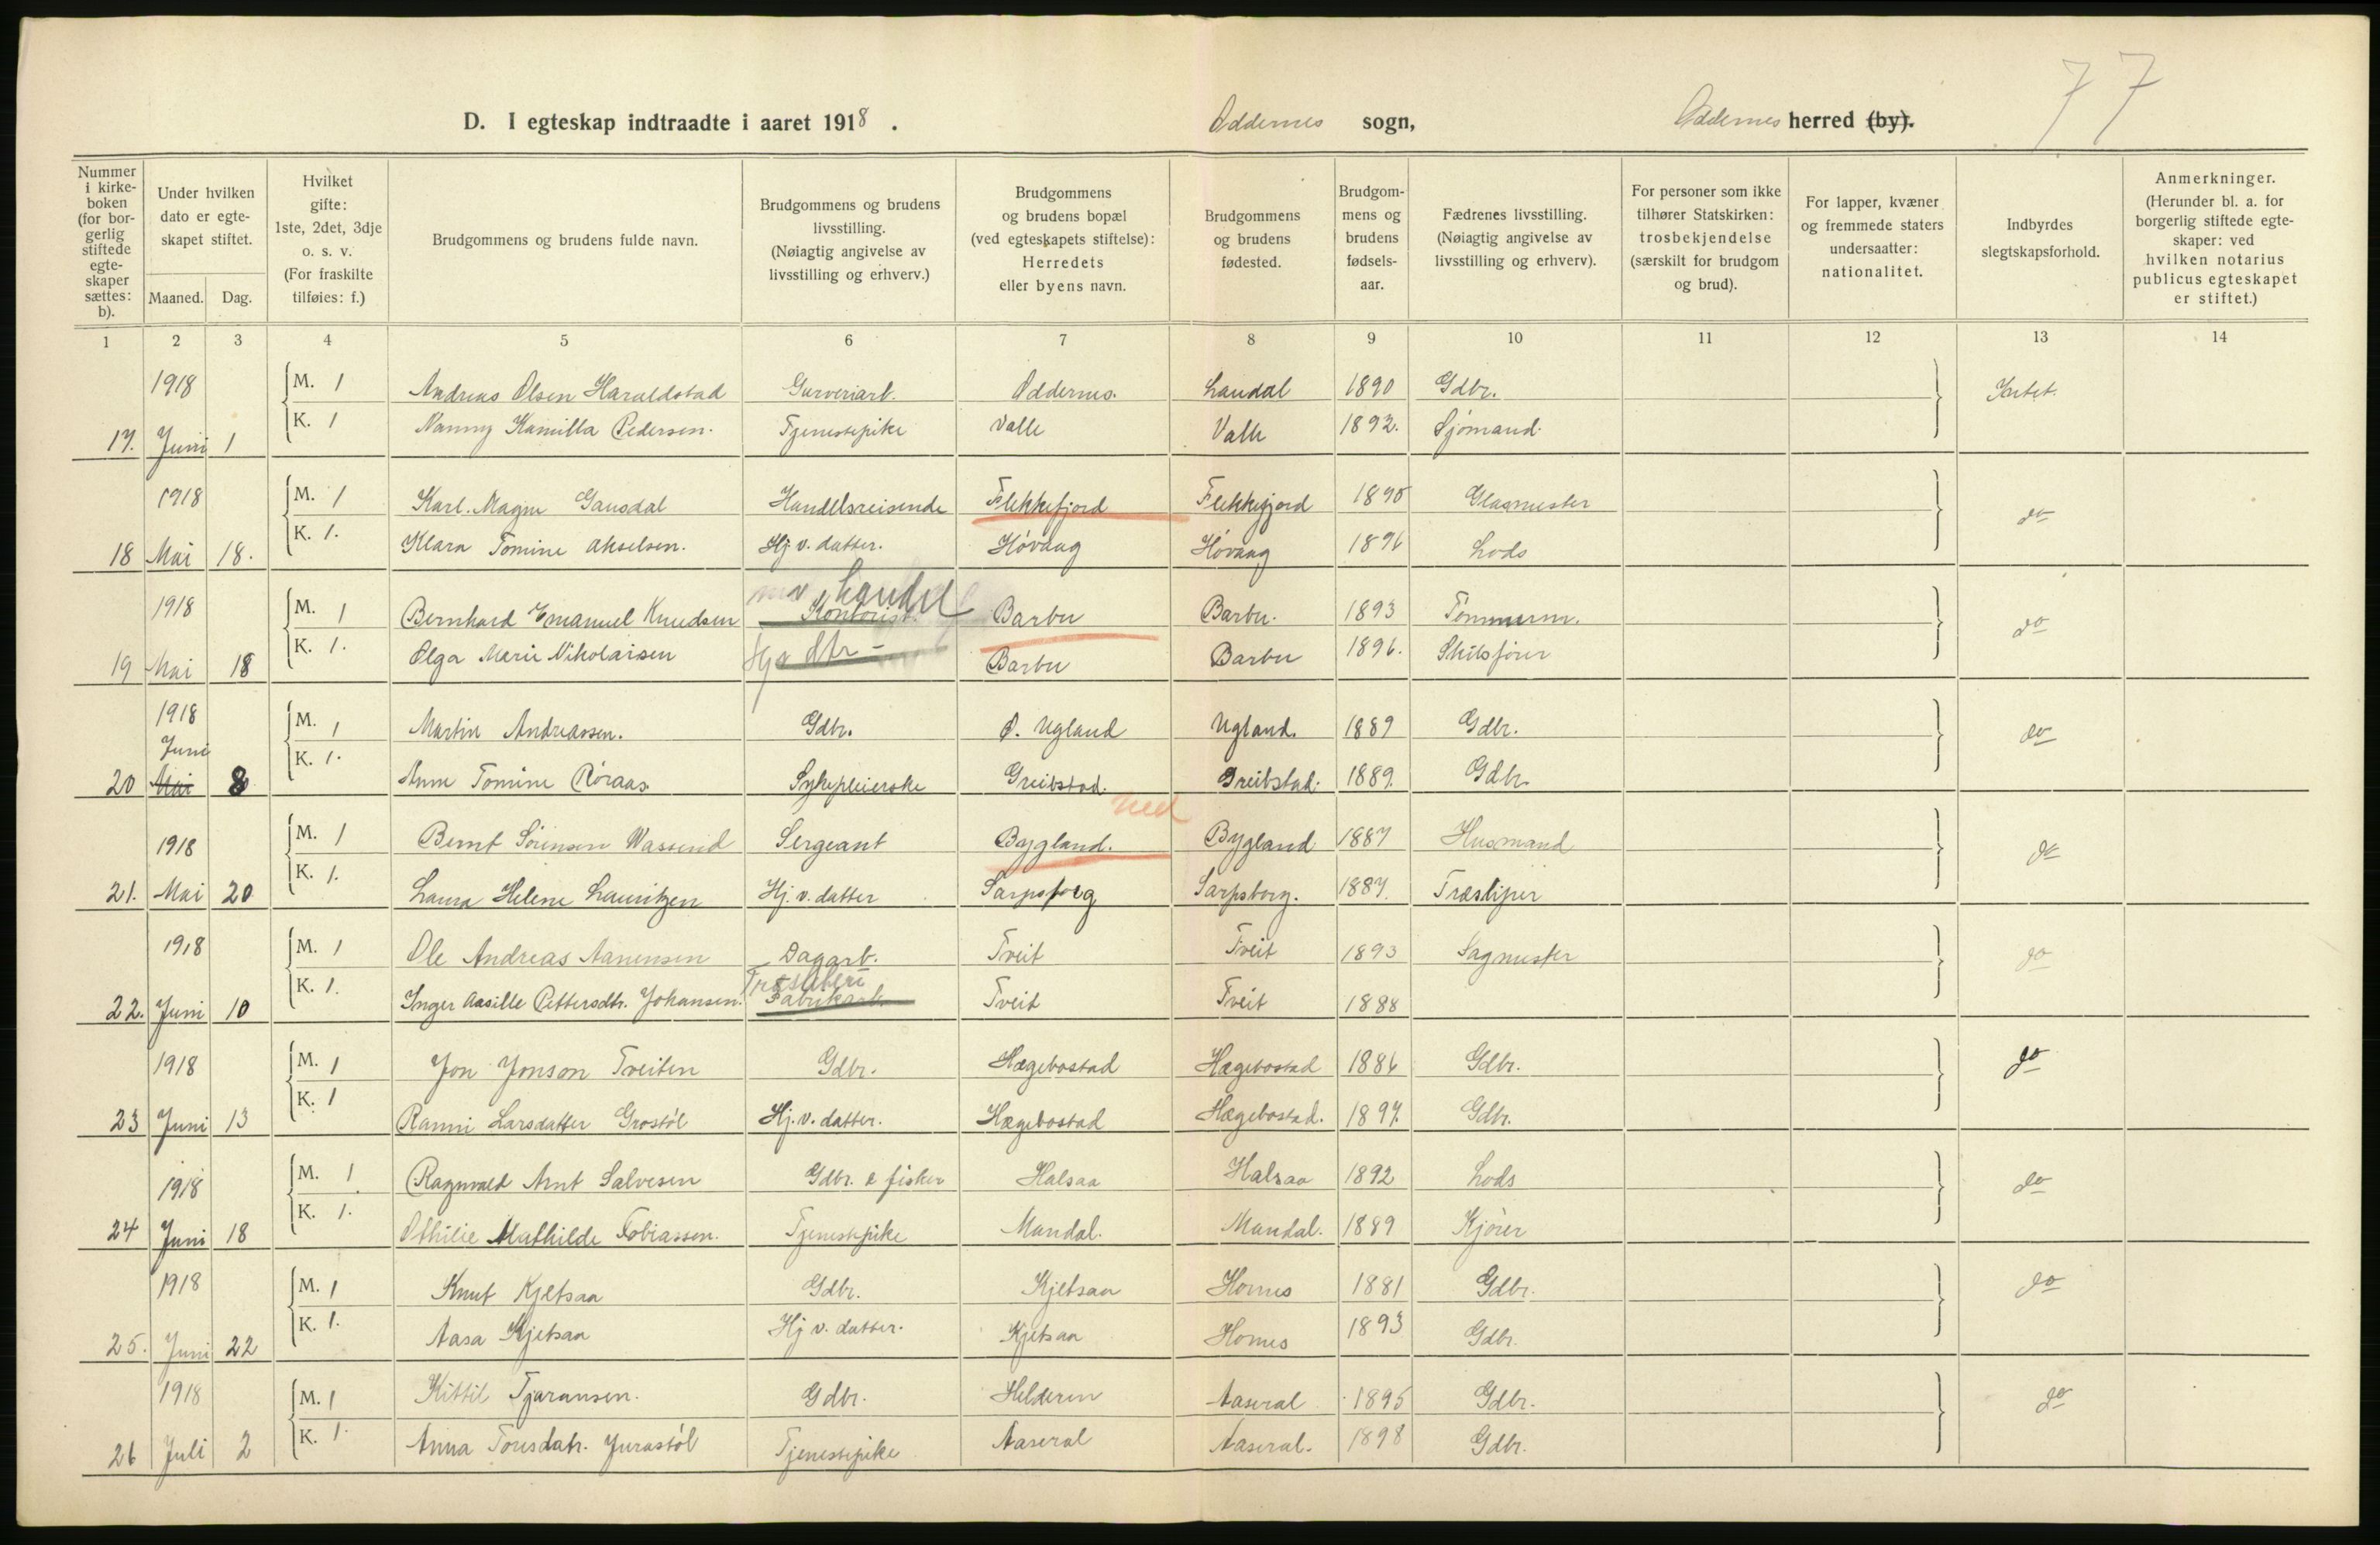 77
D. I egteskap indtraadte i aaret 1918 . Oddernes sogn, Oddernes herred (by).
Nummer i kirkeboken (for borgerlig stiftede egteskaper sættes: b).
Under hvilken dato er egteskapet stiftet.
Maaned. Dag.
Hvilket gifte: 1ste, 2det, 3dje o. s. v. (For fraskilte tilføies: f.)
Brudgommens og brudens fulde navn.
Brudgommens og brudens livsstilling. (Nøiagtig angivelse av livsstilling og erhverv.)
Brudgommens og brudens bopæl (ved egteskapets stiftelse): Herredets eller byens navn.
Brudgommens og brudens fødested.
Brudgommens og brudens fødselsaar.
Fædrenes livsstilling. (Nøiagtig angivelse av livsstilling og erhverv).
For personer som ikke tilhører Statskirken: trosbekjendelse (særskilt for brudgom og brud).
For lapper, kvæner og fremmede staters undersaatter: nationalitet.
Indbyrdes slegtskapsforhold.
Anmerkninger. (Herunder bl. a. for borgerlig stiftede egteskaper: ved hvilken notarius publicus egteskapet er stiftet.)
1 2 3 4 5 6 7 8 9 10 11 12 13 14
1918 M. 1 Andreas Olsen Haraldstad Garveriarb. Oddernes. Laudal 1890 Gdbr. Intet.
17. Juni 1 K. 1 Nanny Kamilla Pedersen. Tjenestepike Valle Valle 1892. Sjömand.
1918 M. 1 Karl. Magne Gausdal Handelsreisende Flekkefjord Flekkefjord 1890 Glasmester do
18 Mai 18. K. 1. Klara Tomine Akselsen. Hj. v. datter. Høvaag Høvaag 1896 Lods
m v handel
1918 M. 1 Bernhard Emanuel Knudsen Kontorist. Barbu Barbu. 1893 Tømmerm. do
19 Mai 18 K. 1. Olga Marie Nikolaisen Hj v dtr - Barbu Barbu 1896. Skibsfører
1918 M. 1 Martin Andreassen. Gdbr. Ø. Ugland Ugland. 1889 Gdbr. do
Juni
20 Mai 8 K. 1. Anne Tomine Røraas. Sykepleierske Greibstad. Greibstad. 1889. Gdbr.
ned
1918 M. 1 Bernt Sørensen Wassend Sergeant Bygland. Bygland 1887 Husmand do
21. Mai 20 K. 1. Laura Helene Lauritzen Hj. v. datter Sarpsborg Sarpsborg. 1887. Træsliper
1918 M. 1 Ole Andreas Aanensen Dagarb. Tveit Tveit 1893 Sagmester do
Træsliberi
22. Juni 10 K. 1. Inger Aasille Pettersdtr. Johansen. Fabrikarb. Tveit Tveit 1888
1918 M. 1 Jon Jonson Tveiten Gdbr. Hægebostad Hægebostad 1886 Gdbr. do
23 Juni 13 K. 1 Ranni Larsdatter Grostøl Hj. v. datter. Hægebostad Hægebostad. 1897. Gdbr.
1918 M. 1. Ragnvald Arnt Salvesen Gdbr. & fisker Halsaa Halsaa 1892 Lods do
24 Juni 18 K. 1. Othilie Mathilde Tobiassen. Tjenestepike Mandal. Mandal. 1889 Kjører
1918 M. 1 Knut Kjetsaa Gdbr. Kjetsaa Hornes 1881 Gdbr. do
25. Juni 22 K. 1. Aasa Kjetsaa Hj v. datter. Kjetsaa Hornes 1893 Gdbr.
1918 M. 1 Kittil Tjaransen. Gdbr. Helderen Aaseral 1895 Gdbr. do
26 Juli 2 K. 1. Anna Torisdatr. Jurastøl Tjenestepike Aaseral Aaseral. 1898 Gdbr.